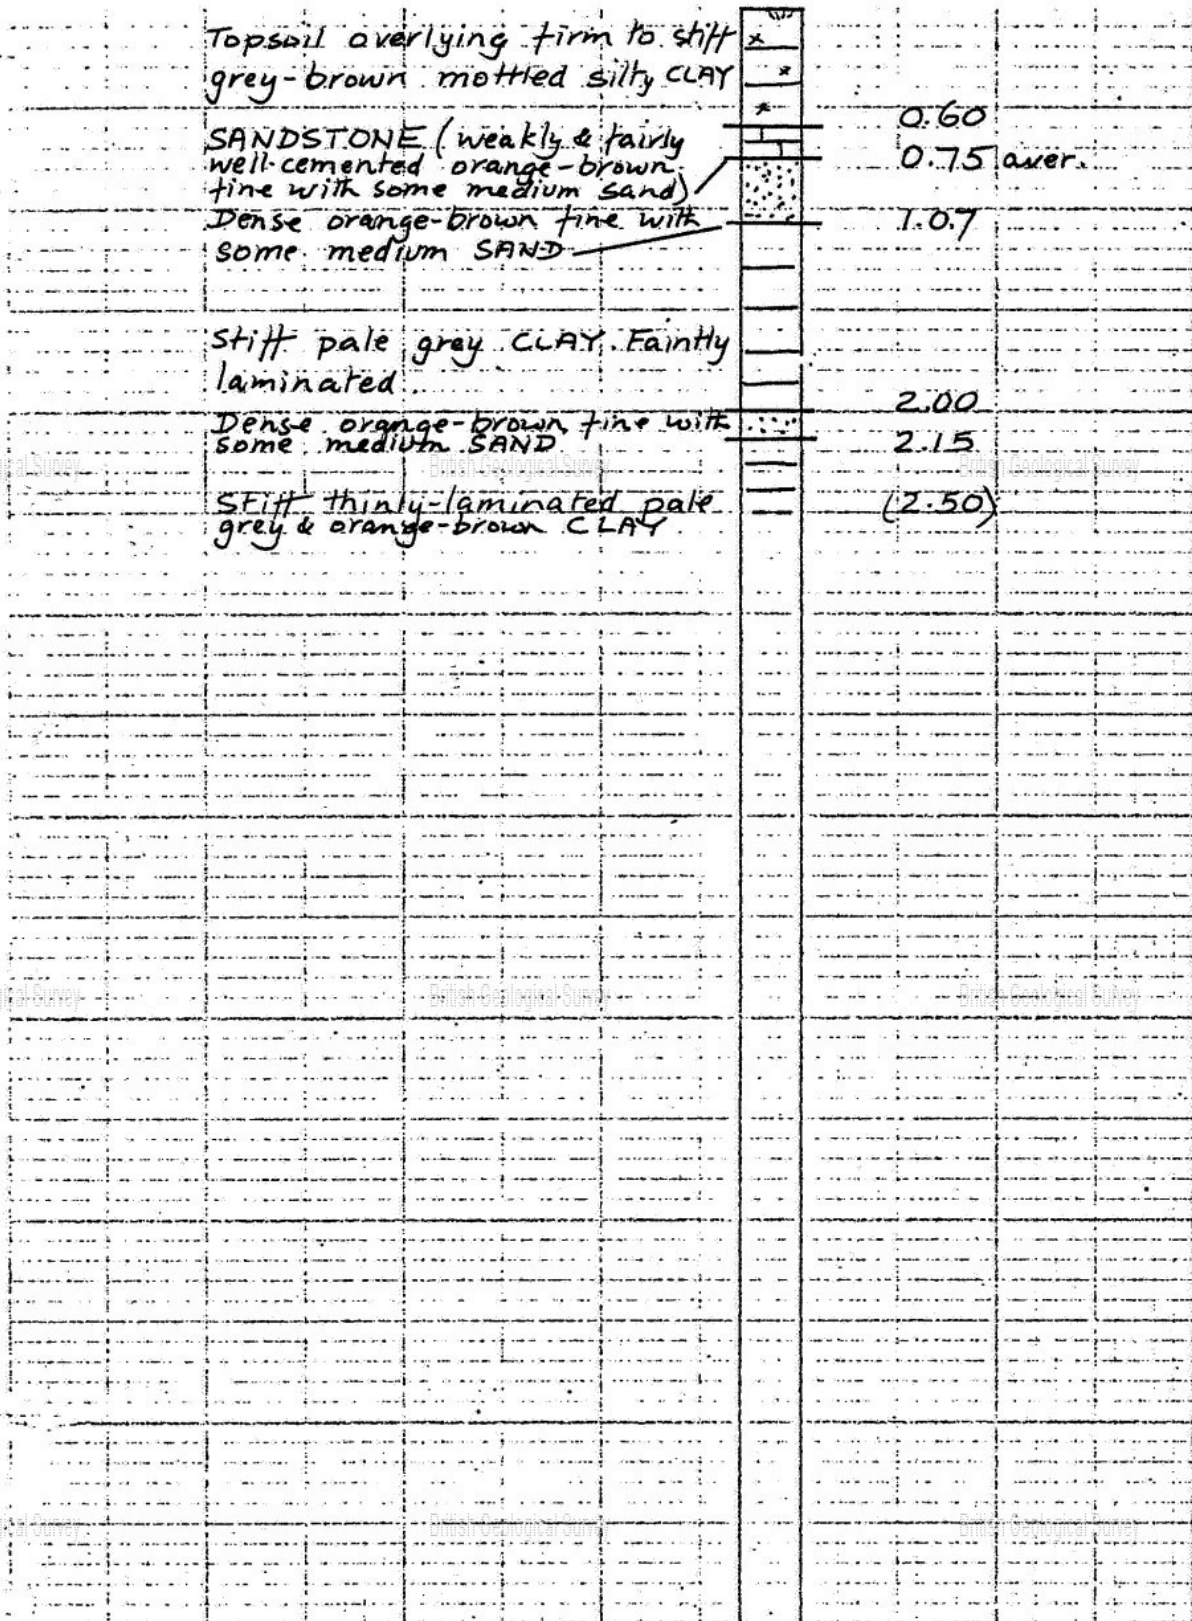 Topsoil overlying firm to stiff
grey-brown mottled silty CLAY
0.60
SANDSTONE (weakly & fairly
well-cemented orange-brown
fine with some medium sand)
0.75 aver.
Dense orange-brown fine with
some medium SAND
1.07
Stiff pale grey CLAY. Faintly
laminated.
2.00
Dense orange-brown fine with
some medium SAND
2.15
British Geological Survey
British Geological Survey
Stiff thinly-laminated pale
grey & orange-brown CLAY
(2.50)
British Geological Survey
British Geological Survey
British Geological Survey
British Geological Survey